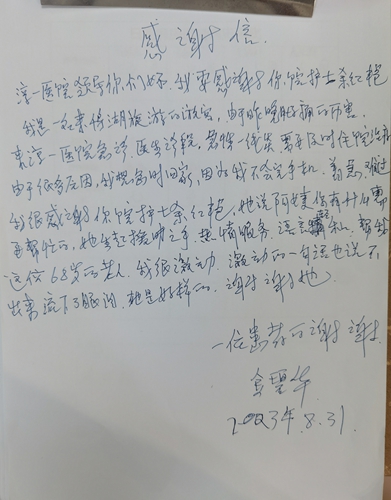 感谢信
淳一医院领导你们好。我要感谢你院护士余红艳
我是一名来千岛湖旅游的游客，由于昨晚肚痛的厉害
来淳一医院急诊。医生诊段，需要及时住院治
由于很多原因，我想急时回家，因为我不会定手机。着急，难过
我很感谢你院护士余红艳，她说阿姨你有什么需
要帮忙的，她生起援助之手，热情服务，语言和，帮助
这位68岁的老人。我很激动，激动的一句话也说不
出来流下了眼泪。她是好样的。谢谢谢谢她
一位患者的谢谢
金
2023年.8.31